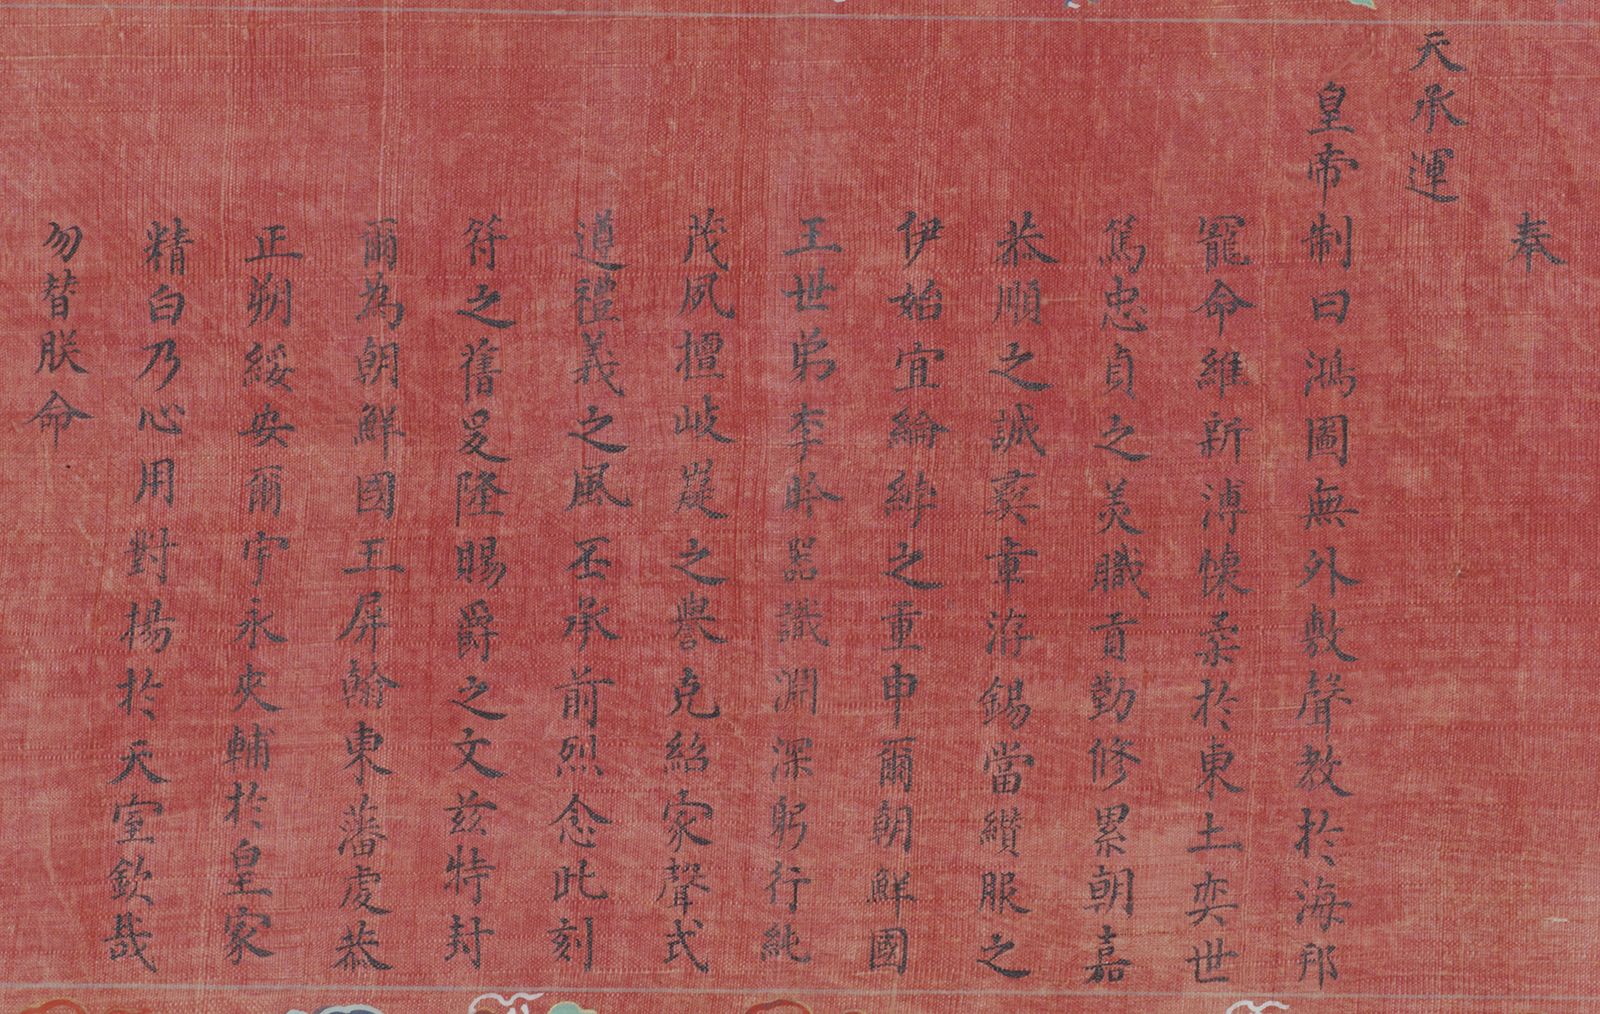 奉
天承運
皇帝制曰鴻圖無外敷聲教於海邦
寵命維新溥懷柔於東土奕世
篤忠貞之美職貢勤修累朝嘉
恭順之誠褒章洊錫當纘服之
伊始宜綸綍之重申爾朝鮮國
王世弟李昑器識淵深躬行純
茂夙擅岐嶷之譽克紹家聲式
遵禮義之風丕承前烈念此刻
符之舊爰隆賜爵之文茲特封
爾為朝鮮國王屏翰東藩虔恭
正朔綏安爾宇永夾輔於皇家
精白乃心用對揚於天室欽哉
勿替朕命